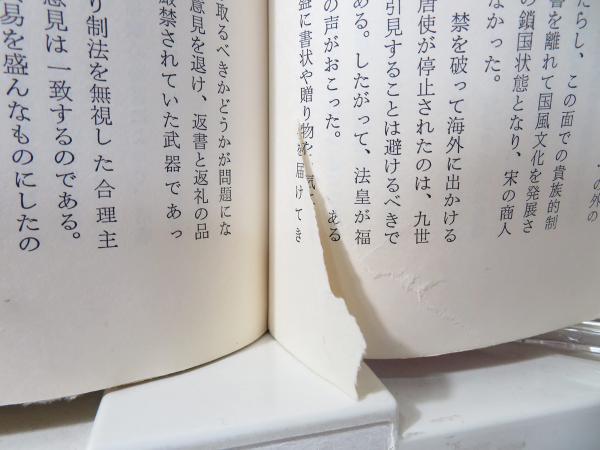 の外の
たらし、この面での貴族的制
を離れて国風文化を発展さ
の鎖国状態となり、宋の商人
なかった。
禁を破って海外に出かける
唐使が停止されたのは、九世
引見することは避けるべきで
ある。したがって、法皇が福
の声がおこった。 ある
盛に書状や贈り物を届けてき
取るべきかどうかが問題にな
意見を退け、返書と返礼の品
厳禁されていた武器であっ
り制法を無視した合理主
意見は一致するのである。
易を盛んなものにしたの